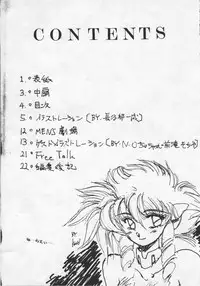 CONTENTS
1.・表紙
3.・中扉
4.・目次
5.・イラストレーション(BY.長谷部一成)
12・MEN'S劇場
13・イラストレーション(BY.
21・Free Talk
22・編集後記